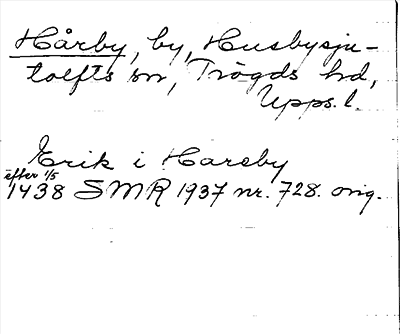 Hårby, by, Husbysju-
tolfts sn, Trögds hd,
Upps. l.
Erik i Hareby
efter 1/5
1438 SMR 1937 nr. 728. orig.